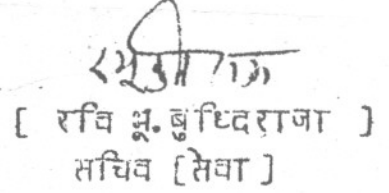 [ रवि भू. बुध्दिराजा ]
सचिव [सेवा ]